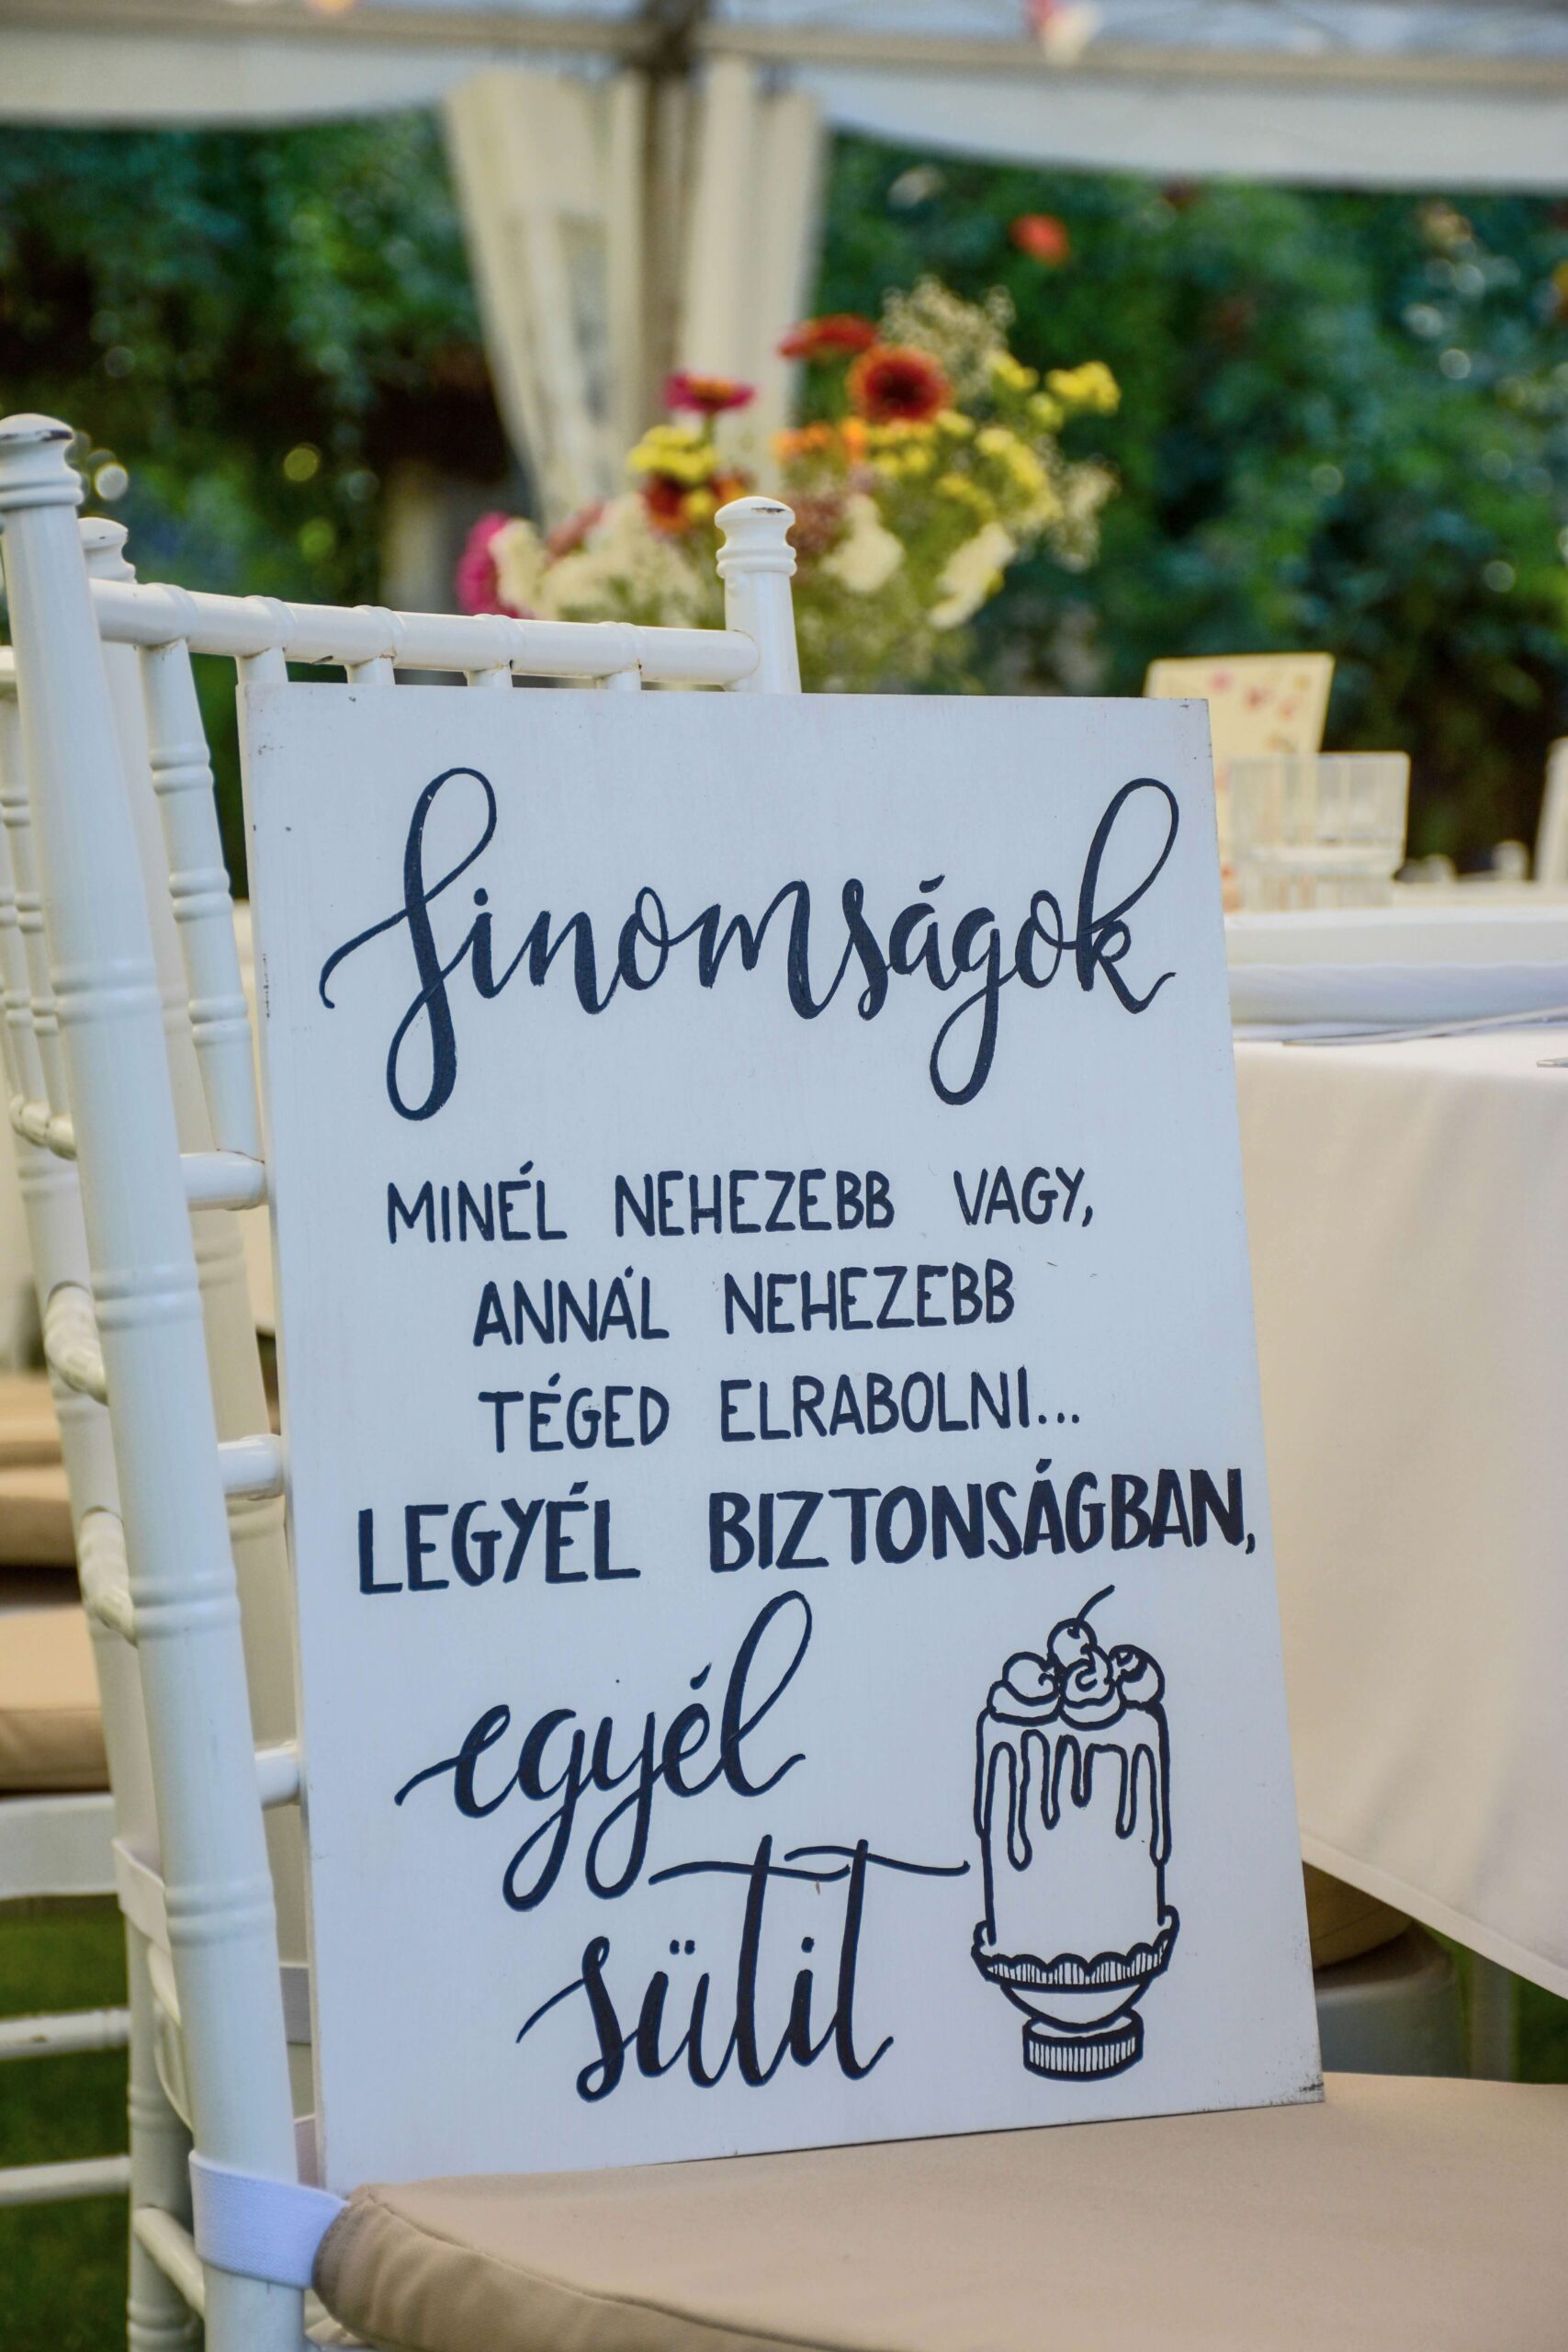 finomságok
MINÉL NEHEZEBB VAGY,
ANNÁL NEHEZEBB
TÉGED ELRABOLNI...
LEGYÉL BIZTONSÁGBAN,
egyél
sütit